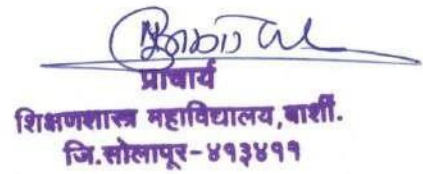 प्राचार्य
शिक्षणशास्त्र महाविद्यालय,बार्शी.
जि.सोलापूर-४१३४११